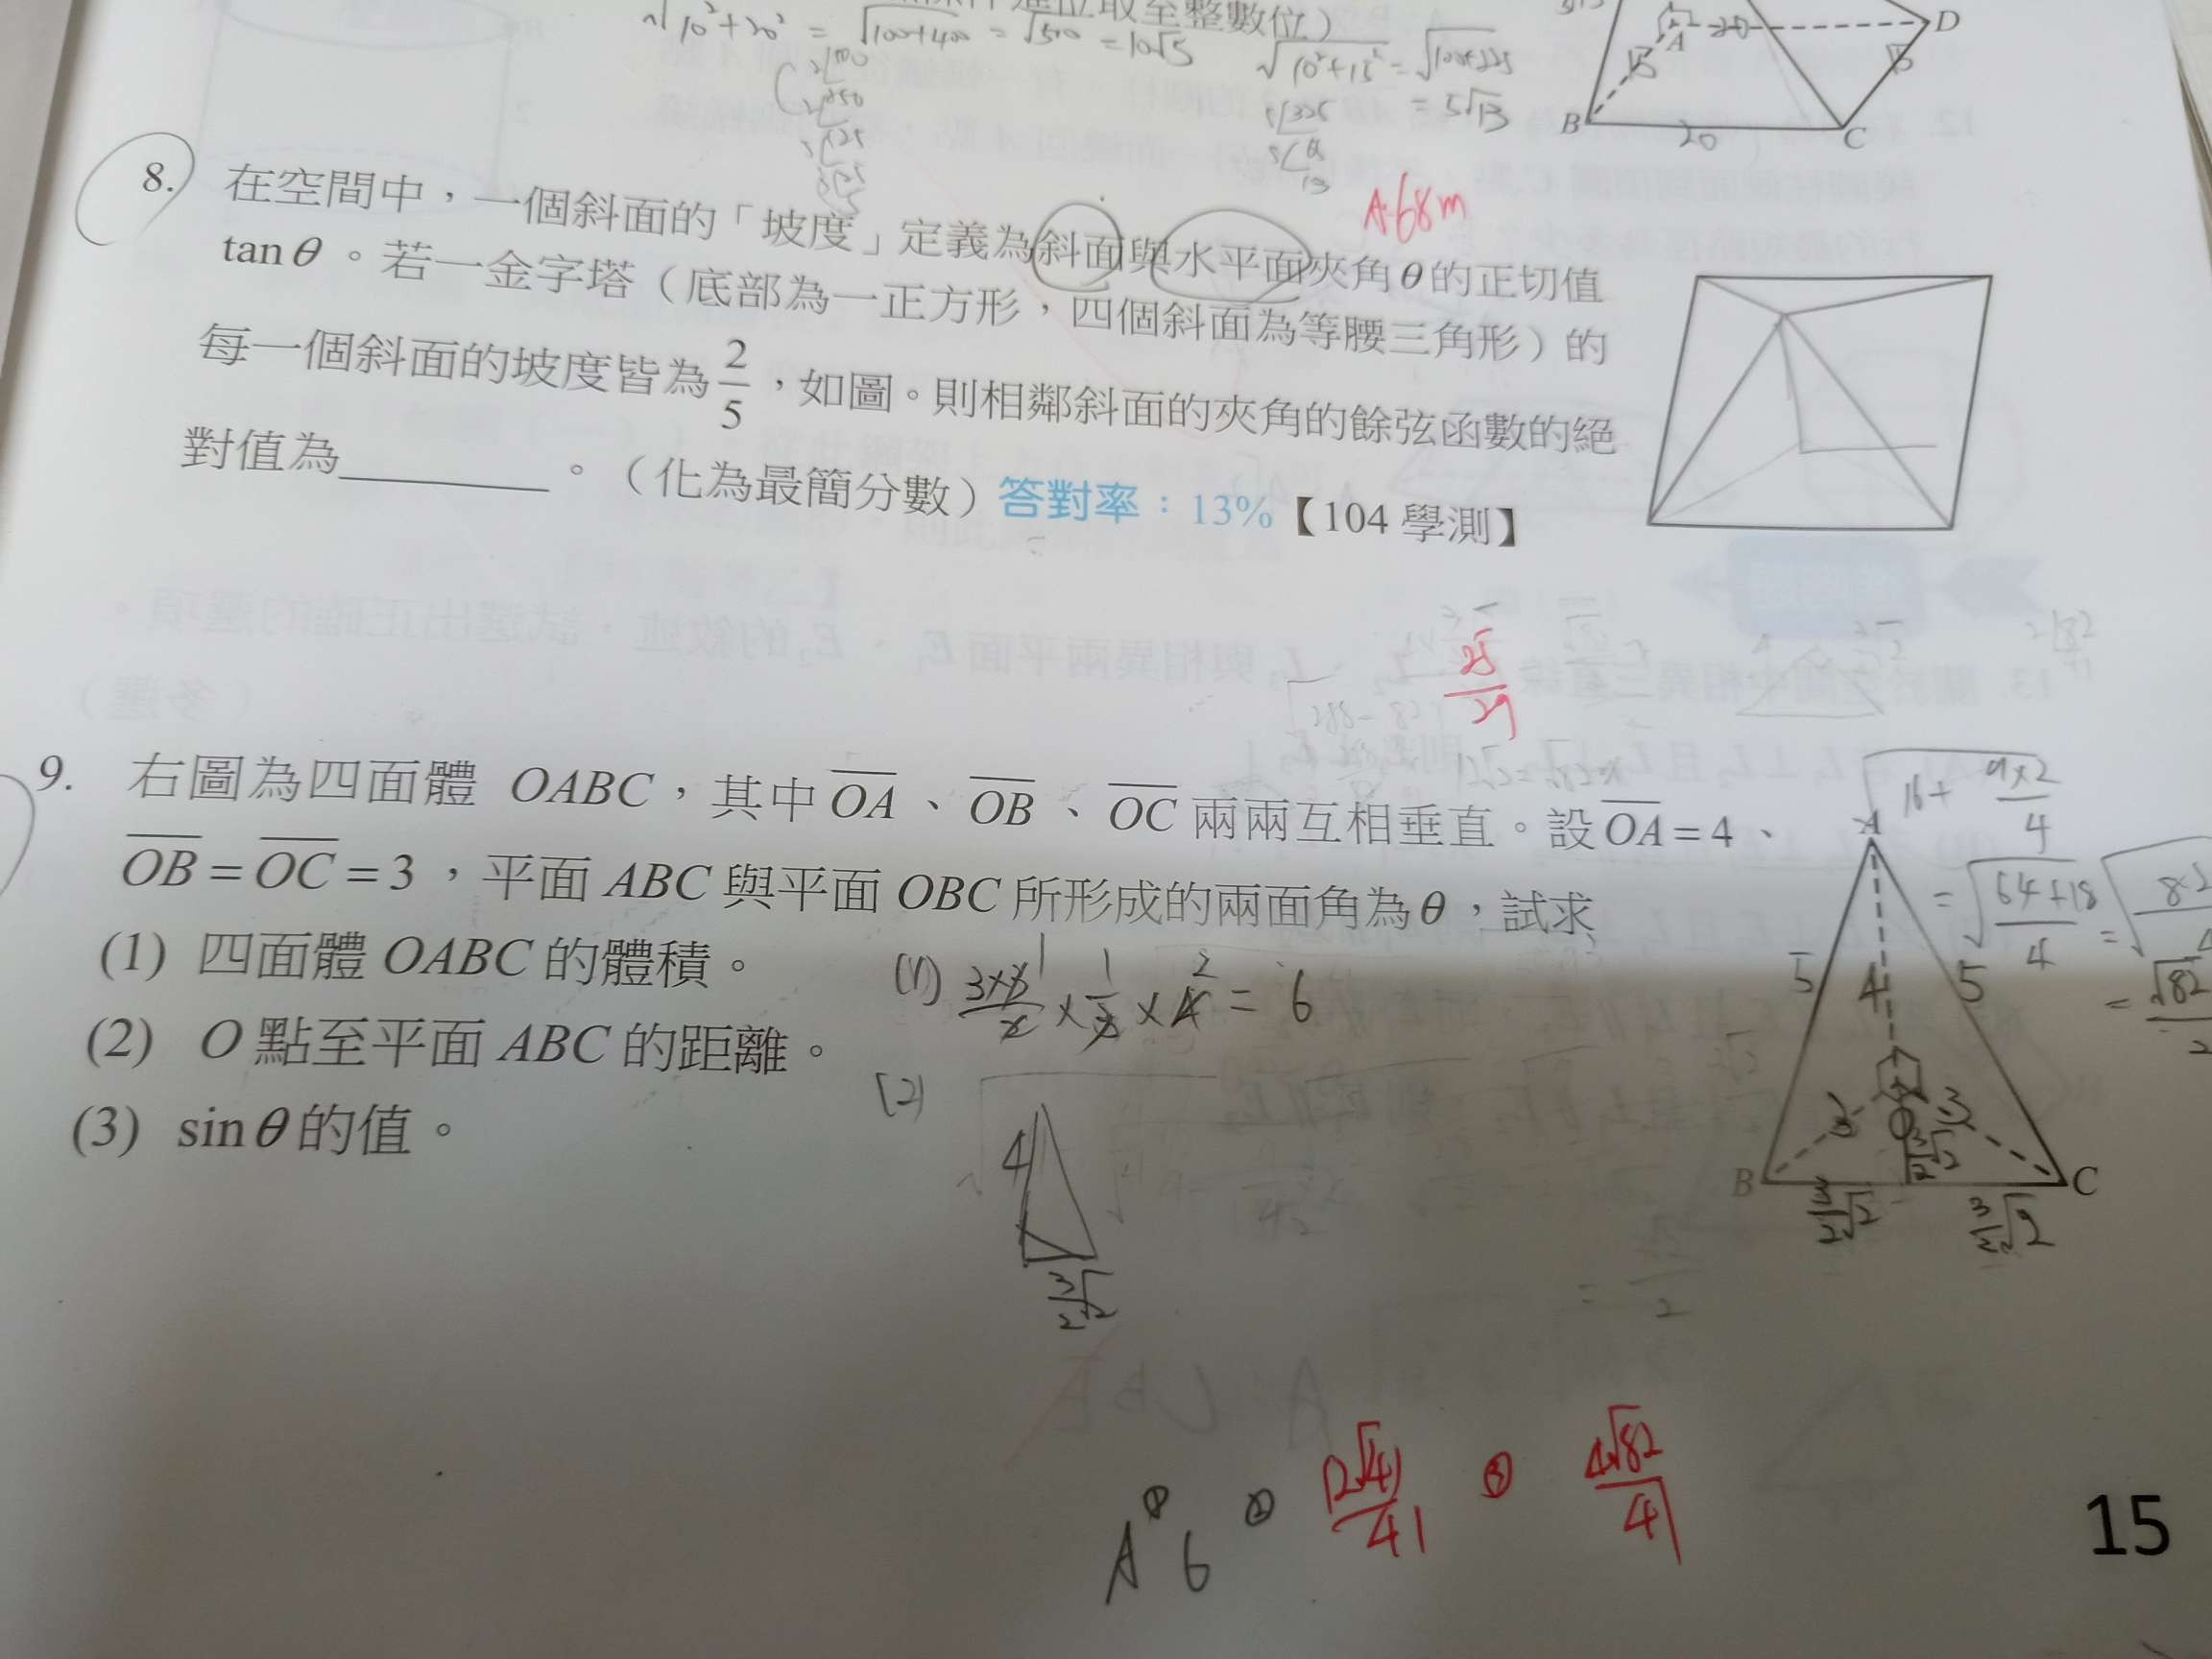 進位取至整數位)
√10²+20² = √100+400 = √500 = 10√5
√10²+15² = √100+225
= 5√13
A
20
15
D
15
B
20
C
A:68m
8. 在空間中,一個斜面的「坡度」定義為斜面與水平面夾角θ的正切值
tanθ。若一金字塔(底部為一正方形,四個斜面為等腰三角形)的
每一個斜面的坡度皆為 2/5 ,如圖。則相鄰斜面的夾角的餘弦函數的絕
對值為________。(化為最簡分數)答對率:13%【104 學測】
25/29
9. 右圖為四面體 OABC,其中 OA、OB、OC 兩兩互相垂直。設 OA=4、
OB=OC=3,平面 ABC 與平面 OBC 所形成的兩面角為θ,試求
(1) 四面體 OABC 的體積。
(1) 3×3/2 × 1/3 × 4 = 6
(2) O 點至平面 ABC 的距離。
(2)
(3) sinθ 的值。
4
3/2√2
√16+ 9×2/4
= √64+18/4
= √82/2
A
5
4
5
3
O
3
3/2√2
B
C
3/2√2
3/2√2
A ① 6 ② 12√41/41 ③ 4√82/41
15